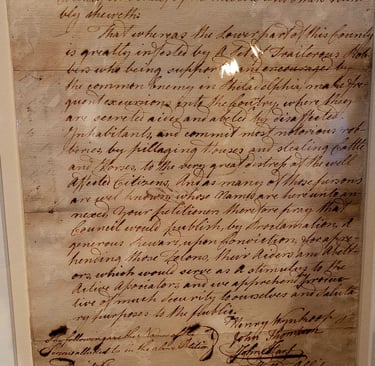 bly sheweth:
That whereas the Lower part of this County
is greatly infested by a Set of Traiterous Rob-
bers who being supported and encouraged by
the common enemy in Philadelphia, make fre-
quent excursions into the Country where they
are secreted aided and abeted by disaffected
Inhabitants, and commit most notorious rob-
beries by pillaging Houses and stealing Cattle
and Horses, to the very great distress of the well
Affected Citizens. And as many of these persons
are well known whose Names are hereunto an-
nexed Your petitioners therefore pray that
Council would Publish, by Proclamation, A
generous Reward, upon Conviction, for appre-
hending those Felons, their Aiders and Abett-
ors, which would serve as a stimulus to the
Active Associators, and we apprehend
tive of much Security to ourselves and Saluta-
ry purposes to the Publick.
Henry Wynkoop
John Thompson
John
following are the Names of the
Persons alluded to in the above Petition